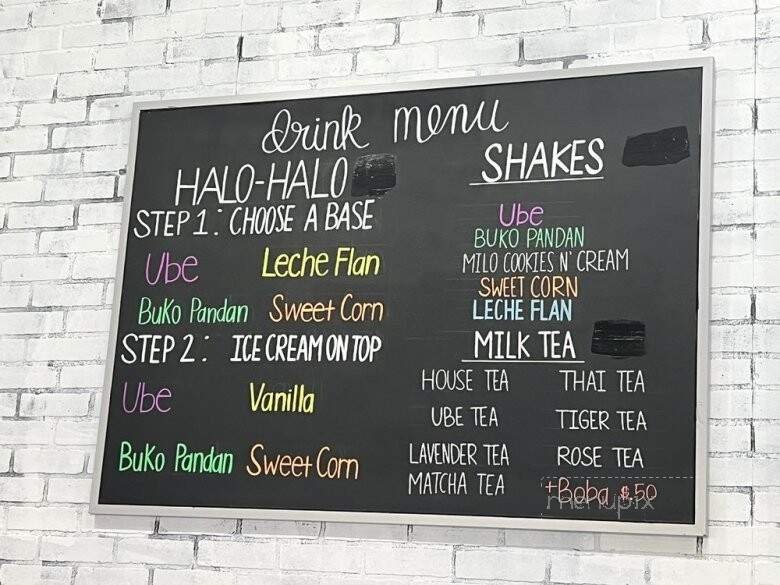 drink menu
HALO-HALO
STEP 1: CHOOSE A BASE
Ube Leche Flan
Buko Pandan Sweet Corn
STEP 2: ICE CREAM ON TOP
Ube Vanilla
Buko Pandan Sweet Corn
SHAKES
Ube
BUKO PANDAN
MILO COOKIES N' CREAM
SWEET CORN
LECHE FLAN
MILK TEA
HOUSE TEA THAI TEA
UBE TEA TIGER TEA
LAVENDER TEA ROSE TEA
MATCHA TEA +Boba $.50
menupix